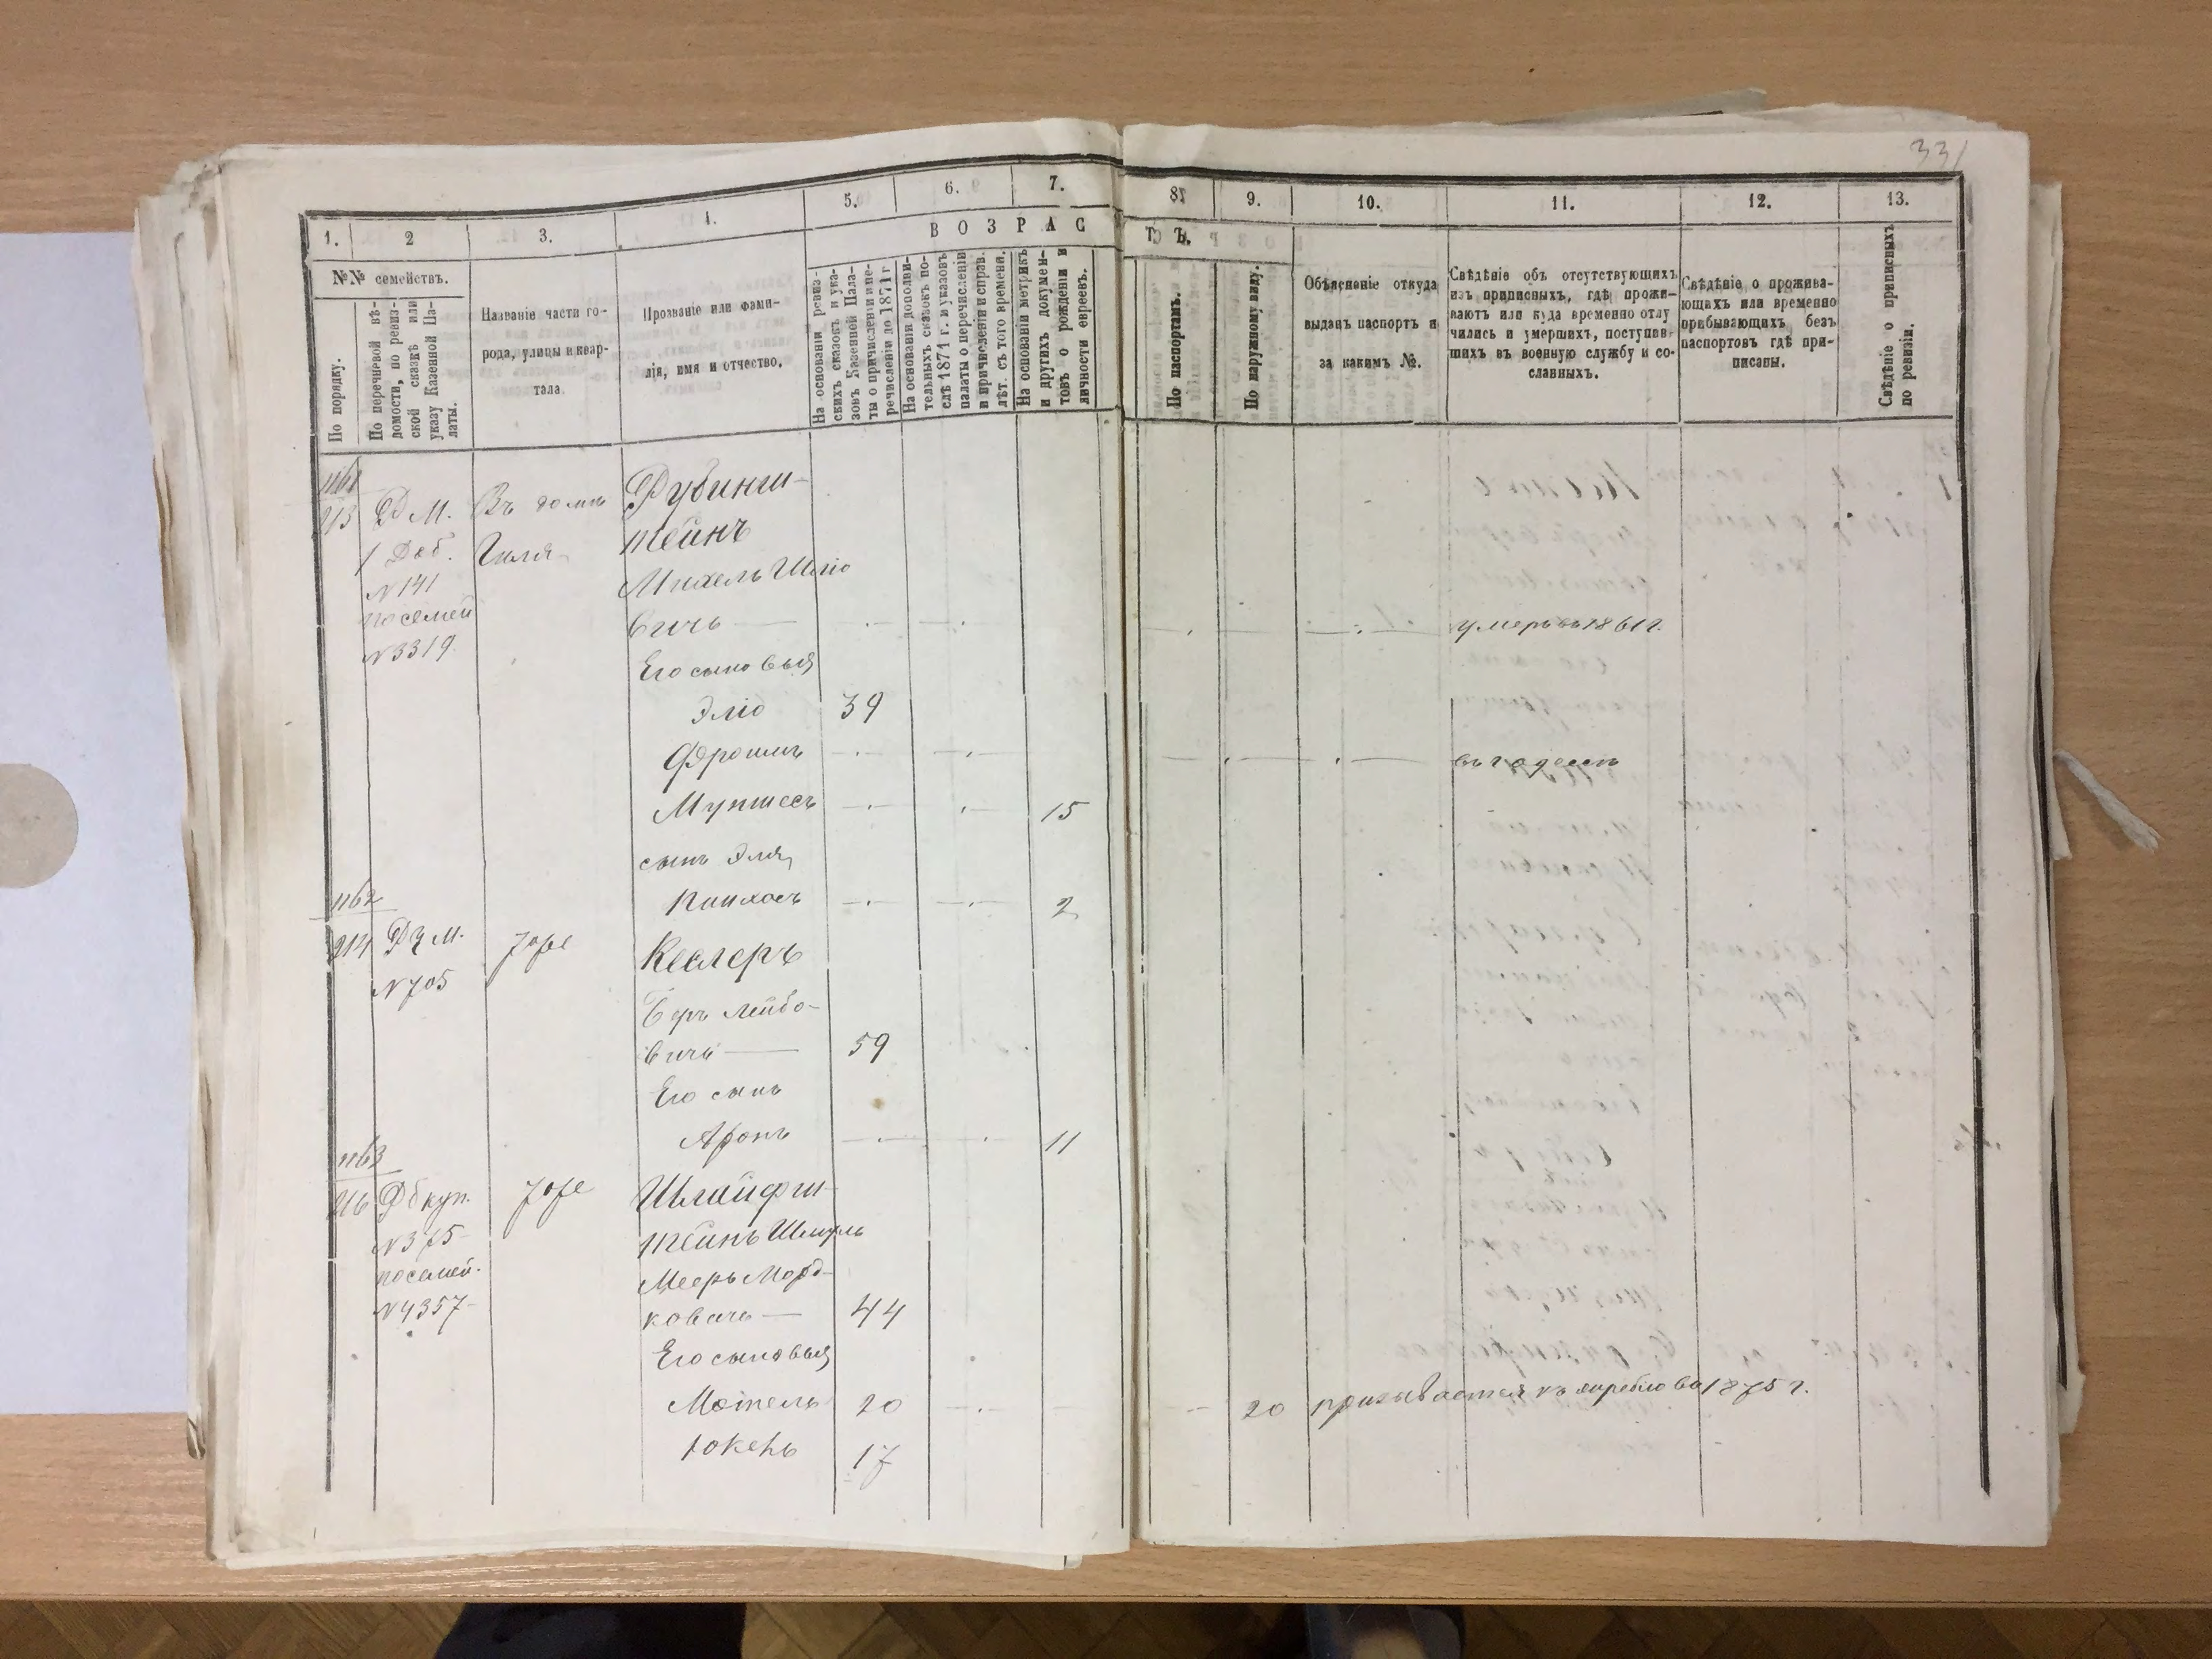 331
1.
2
3.
4.
5.
6.
7.
8.
9.
10.
11.
12.
13.
ВОЗРАС
ТЪ.
№№ семействъ.
По порядку.
По перечневой вѣ-
домости, по ревиз-
ской сказкѣ или
указу Казенной Па-
латы.
Названіе части го-
рода, улицы и квар-
тала
Прозваніе или фами-
лія, имя и отчество.
На основаніи ревиз-
скихъ сказокъ и ука-
зовъ Казенной Пала-
ты о причисленіи и пе-
речисленіи до 1871 г
На основаніи дополни-
тельныхъ сказокъ по-
слѣ 1871 г. и указовъ
палаты о перечисленіи
и причисленіи и справ.
лѣт. съ того времени.
На основаніи метрикъ
и другихъ докумен-
товъ о рожденіи и
личности евреевъ.
По паспортамъ.
По наружному виду.
Объясненіе откуда
выданъ паспортъ и
за какимъ №.
Свѣдѣніе объ отсутствующихъ
изъ приписныхъ, гдѣ прожи-
ваютъ или куда временно отлу
чились и умершихъ, поступив-
шихъ въ военную службу и со-
сланныхъ.
Свѣдѣніе о прожива-
ющихъ или временно
прибывающихъ безъ
паспортовъ гдѣ при-
писаны.
Свѣдѣніе о приписныхъ
по ревизіи.
1161
213 Д М. Въ домѣ Рубинш-
1 Доб. Гиля тейнъ
N 141 Михель Шліо
посемей вичъ — умеръ въ 1861 г.
N 3319.
Его сыновья
Эліо 39
Фроимъ въ г Одессѣ
15
сынъ Эля
Пинхасъ 2
1162
214 М. Тоже Кеслеръ
N 705
Беръ Лейбо-
вичъ — 59
Его сынъ
Аронъ 11
1163
216 куп. Тоже Шлайфш-
N 375 тейнъ Шмуль
посемей. Мееръ Морд-
N 4357 ковичъ — 44
Его сыновья
Мотель 20 20 призывается къ жребію въ 1875 г.
17